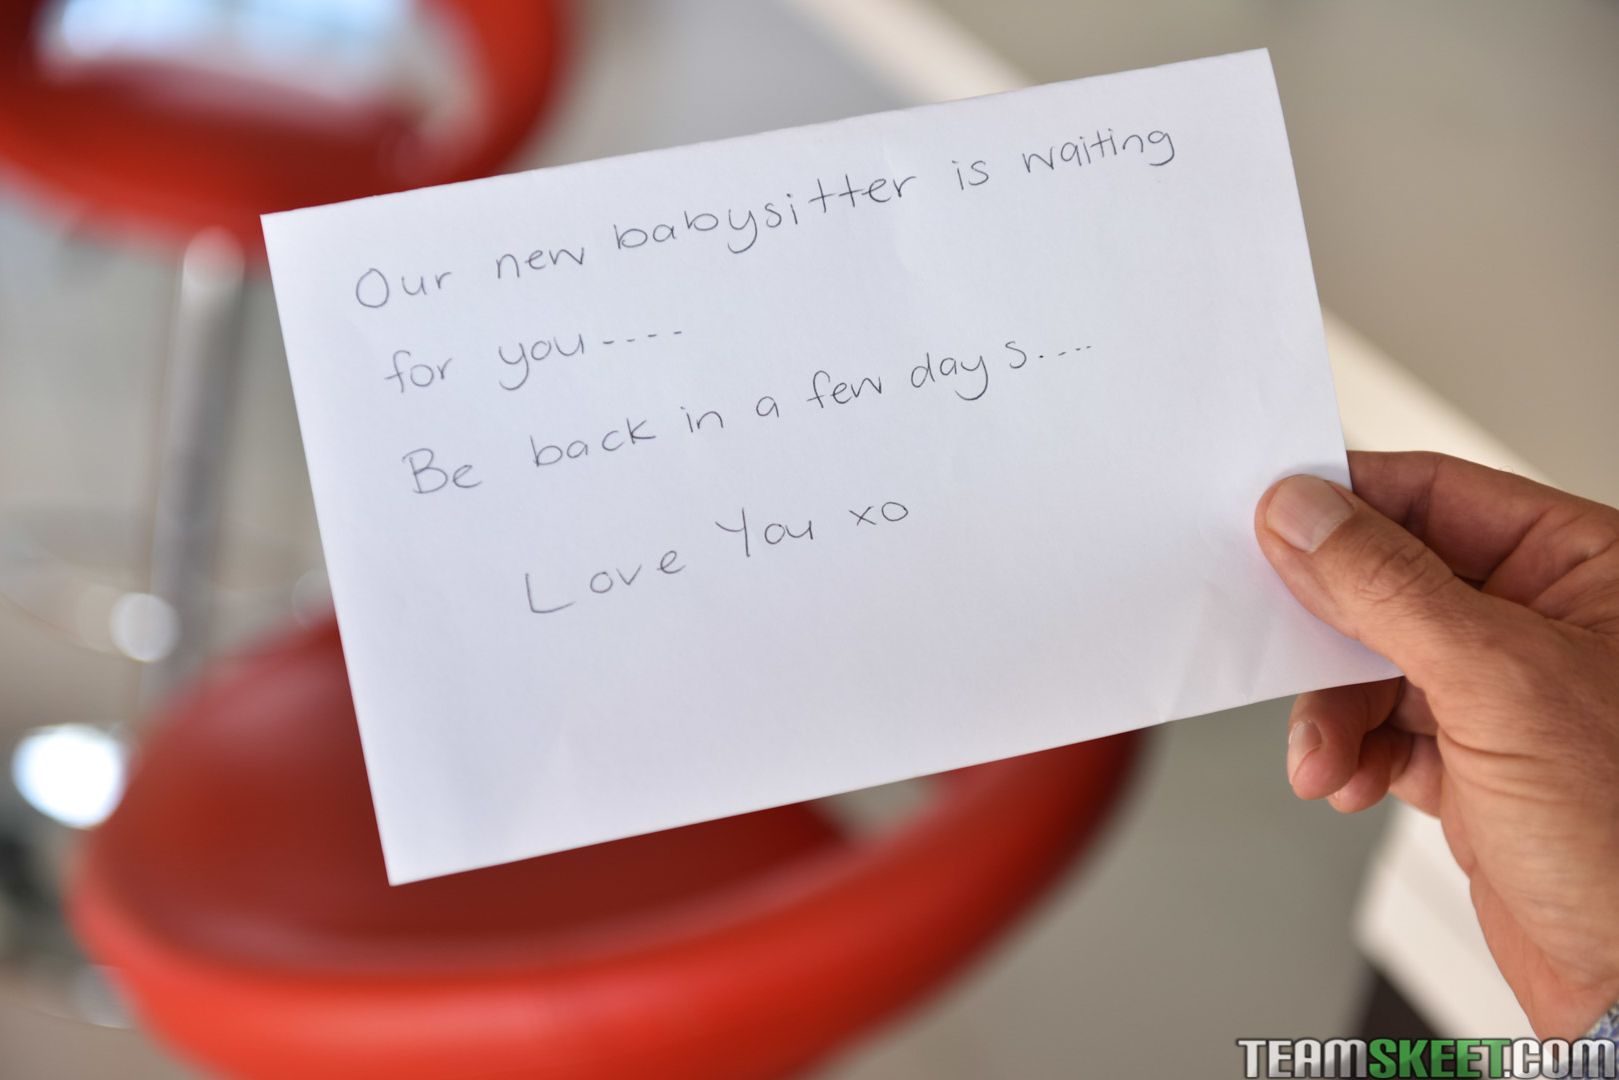 Our new babysitter is waiting
for you----
Be back in a few days....
Love You xo
TEAMSKEET.COM